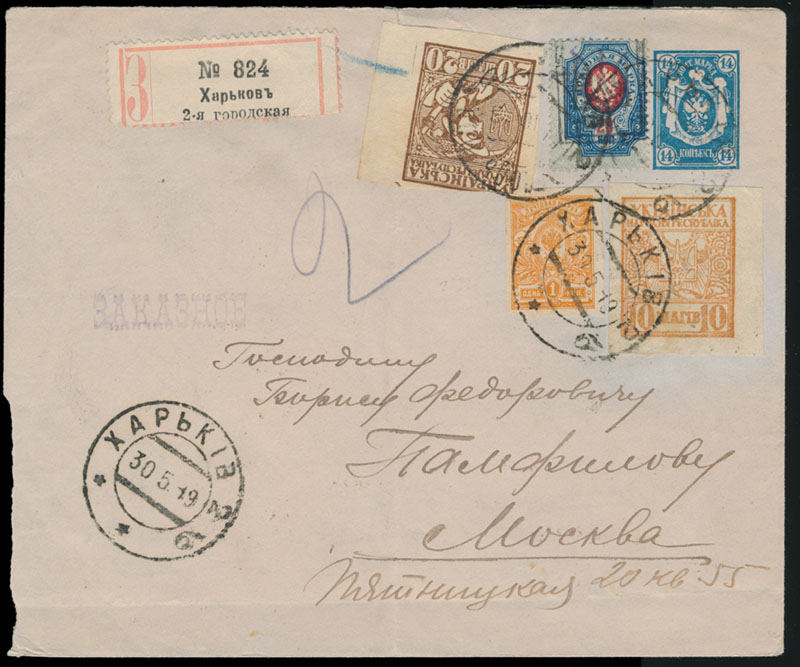 З
№ 824
Харьковъ
2-я городская
20 20
УКРАЇНСЬКА
НАРОДНЯ РЕСПУБЛІКА
14 14
14 14
КОПѢЕКЪ
ХАРЬКІВ 2
30 5 19
ОДНА 1
РЕСПУБЛІКА
10 ШАГІВ 10
2
ЗАКАЗНОЕ
Господину
Борису Федоровичу
Памфилову
Москва
Пятницкая 20 кв 55
ХАРЬКІВ 2
30 5 19